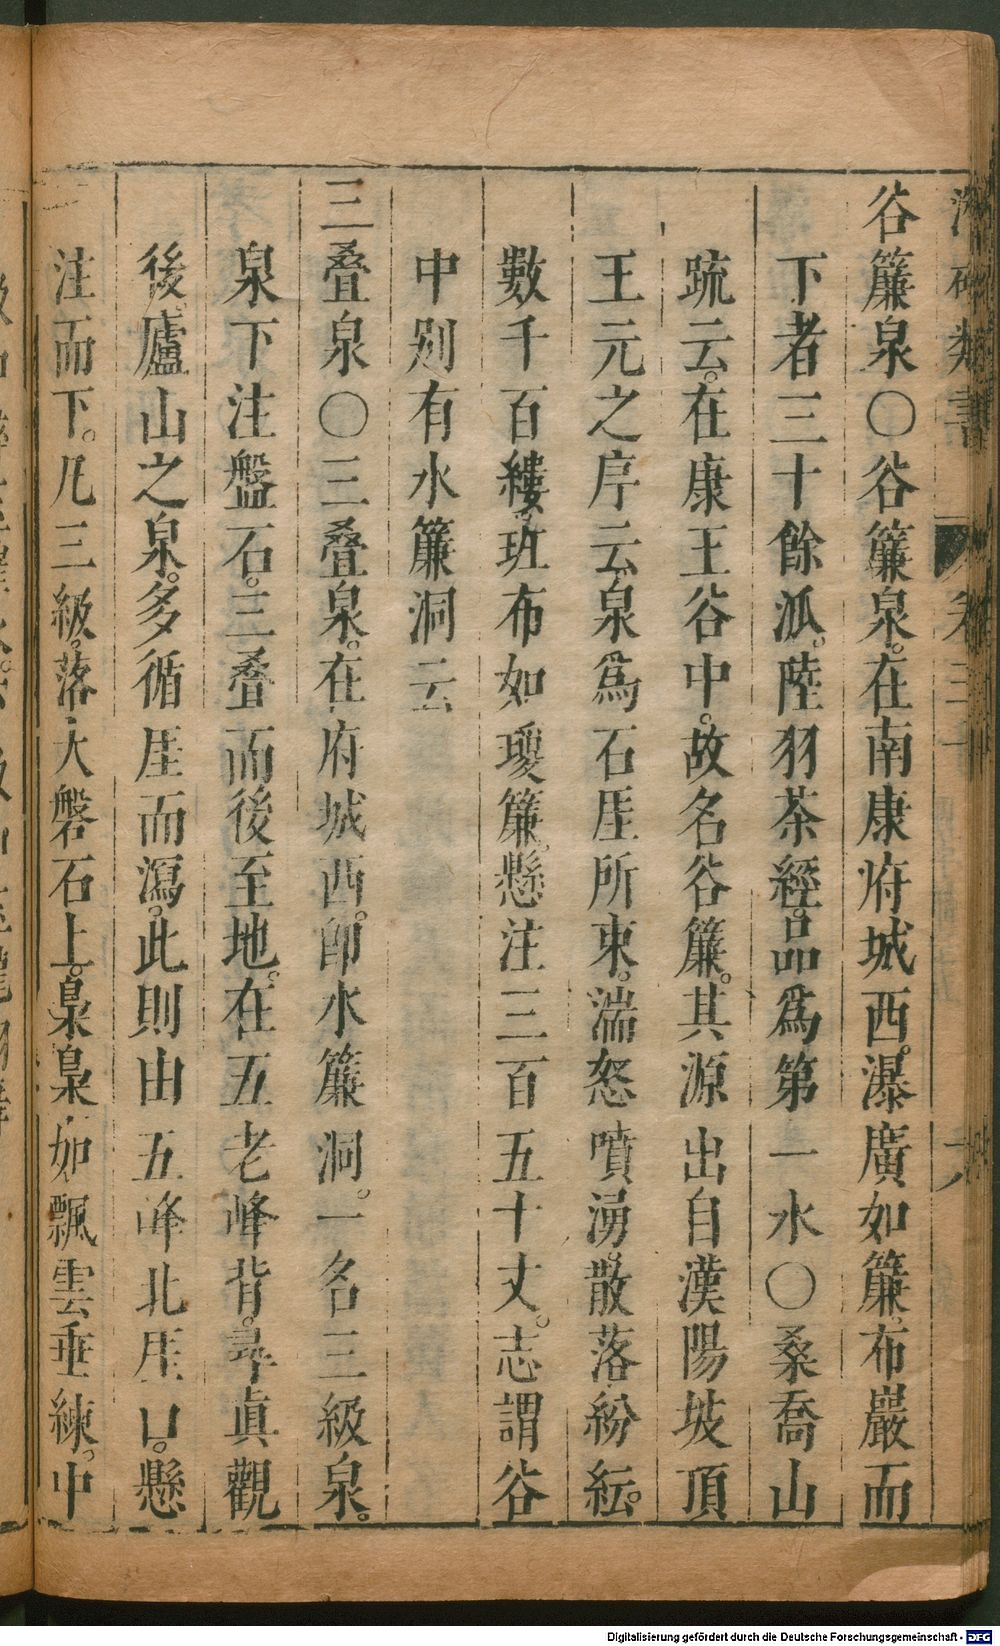 谷簾泉〇谷簾泉。在南康府城西。瀑廣如簾。布巖而
下者三十餘派。陸羽茶經。品爲第一水〇桑喬山
疏云。在康王谷中。故名谷簾。其源出自漢陽坡頂
王元之序云。泉爲石厓所束。湍怒噴湧。散落紛紜。
數千百縷。班布如瓊簾。懸注三百五十丈。志謂谷
中別有水簾洞云
三叠泉〇三叠泉。在府城西。卽水簾洞。一名三級泉。
泉下注盤石。三叠而後至地。在五老峰背。尋眞觀
後。廬山之泉。多循厓而瀉。此則由五峰北厓口。懸
注而下。凡三級。落大磐石上。裊裊如飄雲垂練。中
類書
Digitalisierung gefördert durch die Deutsche Forschungsgemeinschaft - DFG